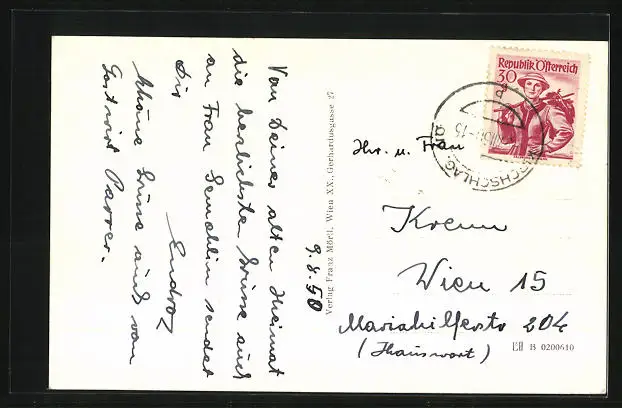 Von Deiner alten Heimat
die herzlichsten Grüsse auch
an Frau Gemahlin sendet
Dir
Endroz
Schöne Grüsse auch von
Gastwirt Parrer.
9.8.50
Verlag Franz Mörtl, Wien XX., Gerhardusgasse 27
Republik Österreich
30
g
KIRCHSCHLAG
Hr. u. Frau
Krenn
Wien 15
Mariahilferstr 204
(Hauswart)
B 0200610